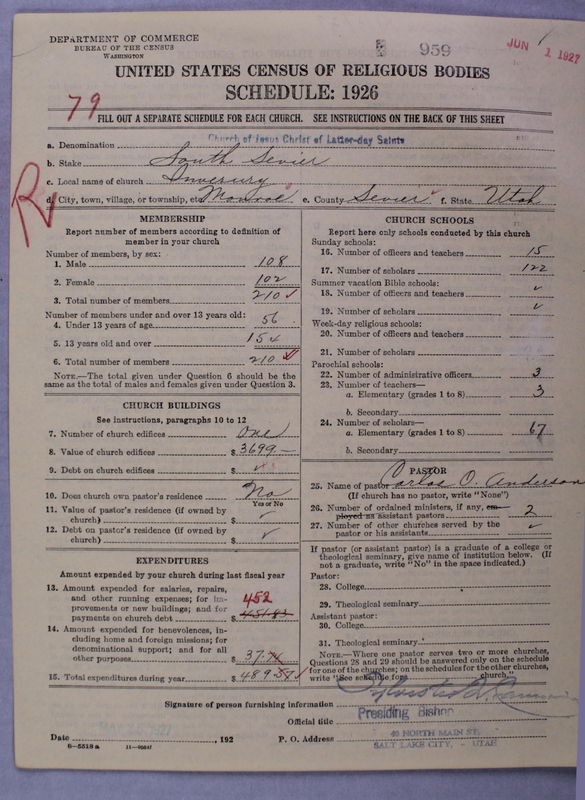 DEPARTMENT OF COMMERCE
BUREAU OF THE CENSUS
WASHINGTON
959
JUN 1 1927
UNITED STATES CENSUS OF RELIGIOUS BODIES
SCHEDULE: 1926
79
FILL OUT A SEPARATE SCHEDULE FOR EACH CHURCH. SEE INSTRUCTIONS ON THE BACK OF THIS SHEET
R
a. Denomination Church of Jesus Christ of Latter-day Saints
b. Stake South Sevier
c. Local name of church Inverury
d. City, town, village, or township, etc. Monroe e. County Sevier f. State Utah
MEMBERSHIP
Report number of members according to definition of
member in your church
Number of members, by sex:
1. Male 108
2. Female 102
3. Total number of members 210 ✓
Number of members under and over 13 years old:
4. Under 13 years of age 56
5. 13 years old and over 154
6. Total number of members 210 ✓
NOTE.—The total given under Question 6 should be the
same as the total of males and females given under Question 3.
CHURCH BUILDINGS
See instructions, paragraphs 10 to 12
7. Number of church edifices One
8. Value of church edifices $ 3699.—
9. Debt on church edifices $ ✓
10. Does church own pastor's residence No
Yes or No
11. Value of pastor's residence (if owned by
church) $ ✓
12. Debt on pastor's residence (if owned by
church) $ ✓
EXPENDITURES
Amount expended by your church during last fiscal year
13. Amount expended for salaries, repairs,
and other running expenses; for im-
provements or new buildings; and for
payments on church debt $ 452 451.83
14. Amount expended for benevolences, in-
cluding home and foreign missions; for
denominational support; and for all
other purposes $ 37.74
15. Total expenditures during year $ 489.57 ✓
CHURCH SCHOOLS
Report here only schools conducted by this church
Sunday schools:
16. Number of officers and teachers 15
17. Number of scholars 122
Summer vacation Bible schools:
18. Number of officers and teachers ✓
19. Number of scholars ✓
Week-day religious schools:
20. Number of officers and teachers
21. Number of scholars
Parochial schools:
22. Number of administrative officers 3
23. Number of teachers—
a. Elementary (grades 1 to 8) 3
b. Secondary
24. Number of scholars—
a. Elementary (grades 1 to 8) 67
b. Secondary
PASTOR
25. Name of pastor Carlos O. Anderson
(If church has no pastor, write "None")
26. Number of ordained ministers, if any, em-
ployed as assistant pastors 2
27. Number of other churches served by the
pastor or his assistants ✓
If pastor (or assistant pastor) is a graduate of a college or
theological seminary, give name of institution below. (If
not a graduate, write "No" in the space indicated.)
Pastor:
28. College
29. Theological seminary
Assistant pastor:
30. College
31. Theological seminary
NOTE.—Where one pastor serves two or more churches,
Questions 28 and 29 should be answered only on the schedule
for one of the churches; on the schedules for the other churches,
write "See schedule for church."
Signature of person furnishing information Sylvester Q. Cannon
Official title Presiding Bishop
Date , 192 P. O. Address 40 NORTH MAIN ST.
SALT LAKE CITY, - UTAH
8-5518 a